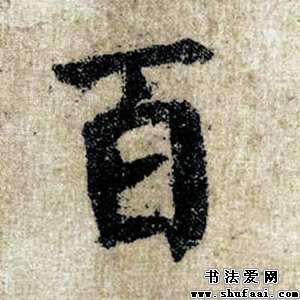 百
书法爱网
www.shufaai.com